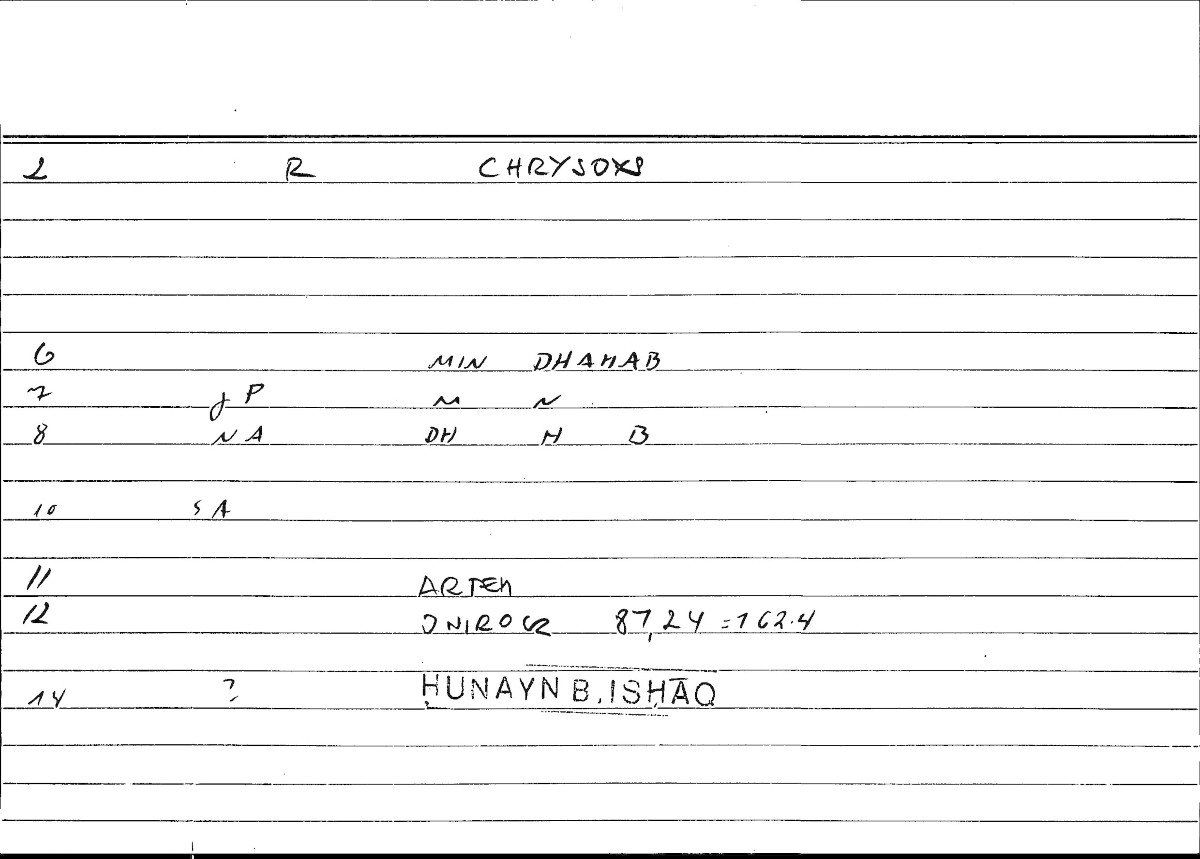 2 R CHRYSOUS
6 MIN DHAHAB
7 JP M N
8 NA DH H B
10 SA
11 ARTEM
12 ONIROCR 87,24 = 162.4
14 ? ḤUNAYN B. ISḤĀQ